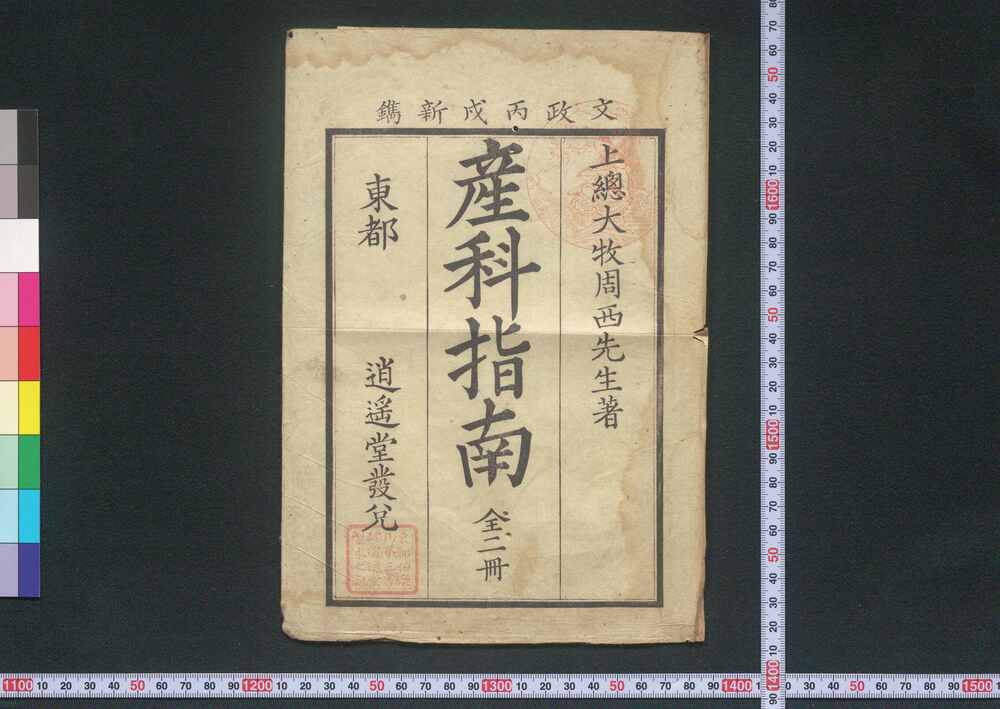 文政丙戌新鐫
上總大牧周西先生著
産科指南 全二冊
東都 逍遥堂發兌